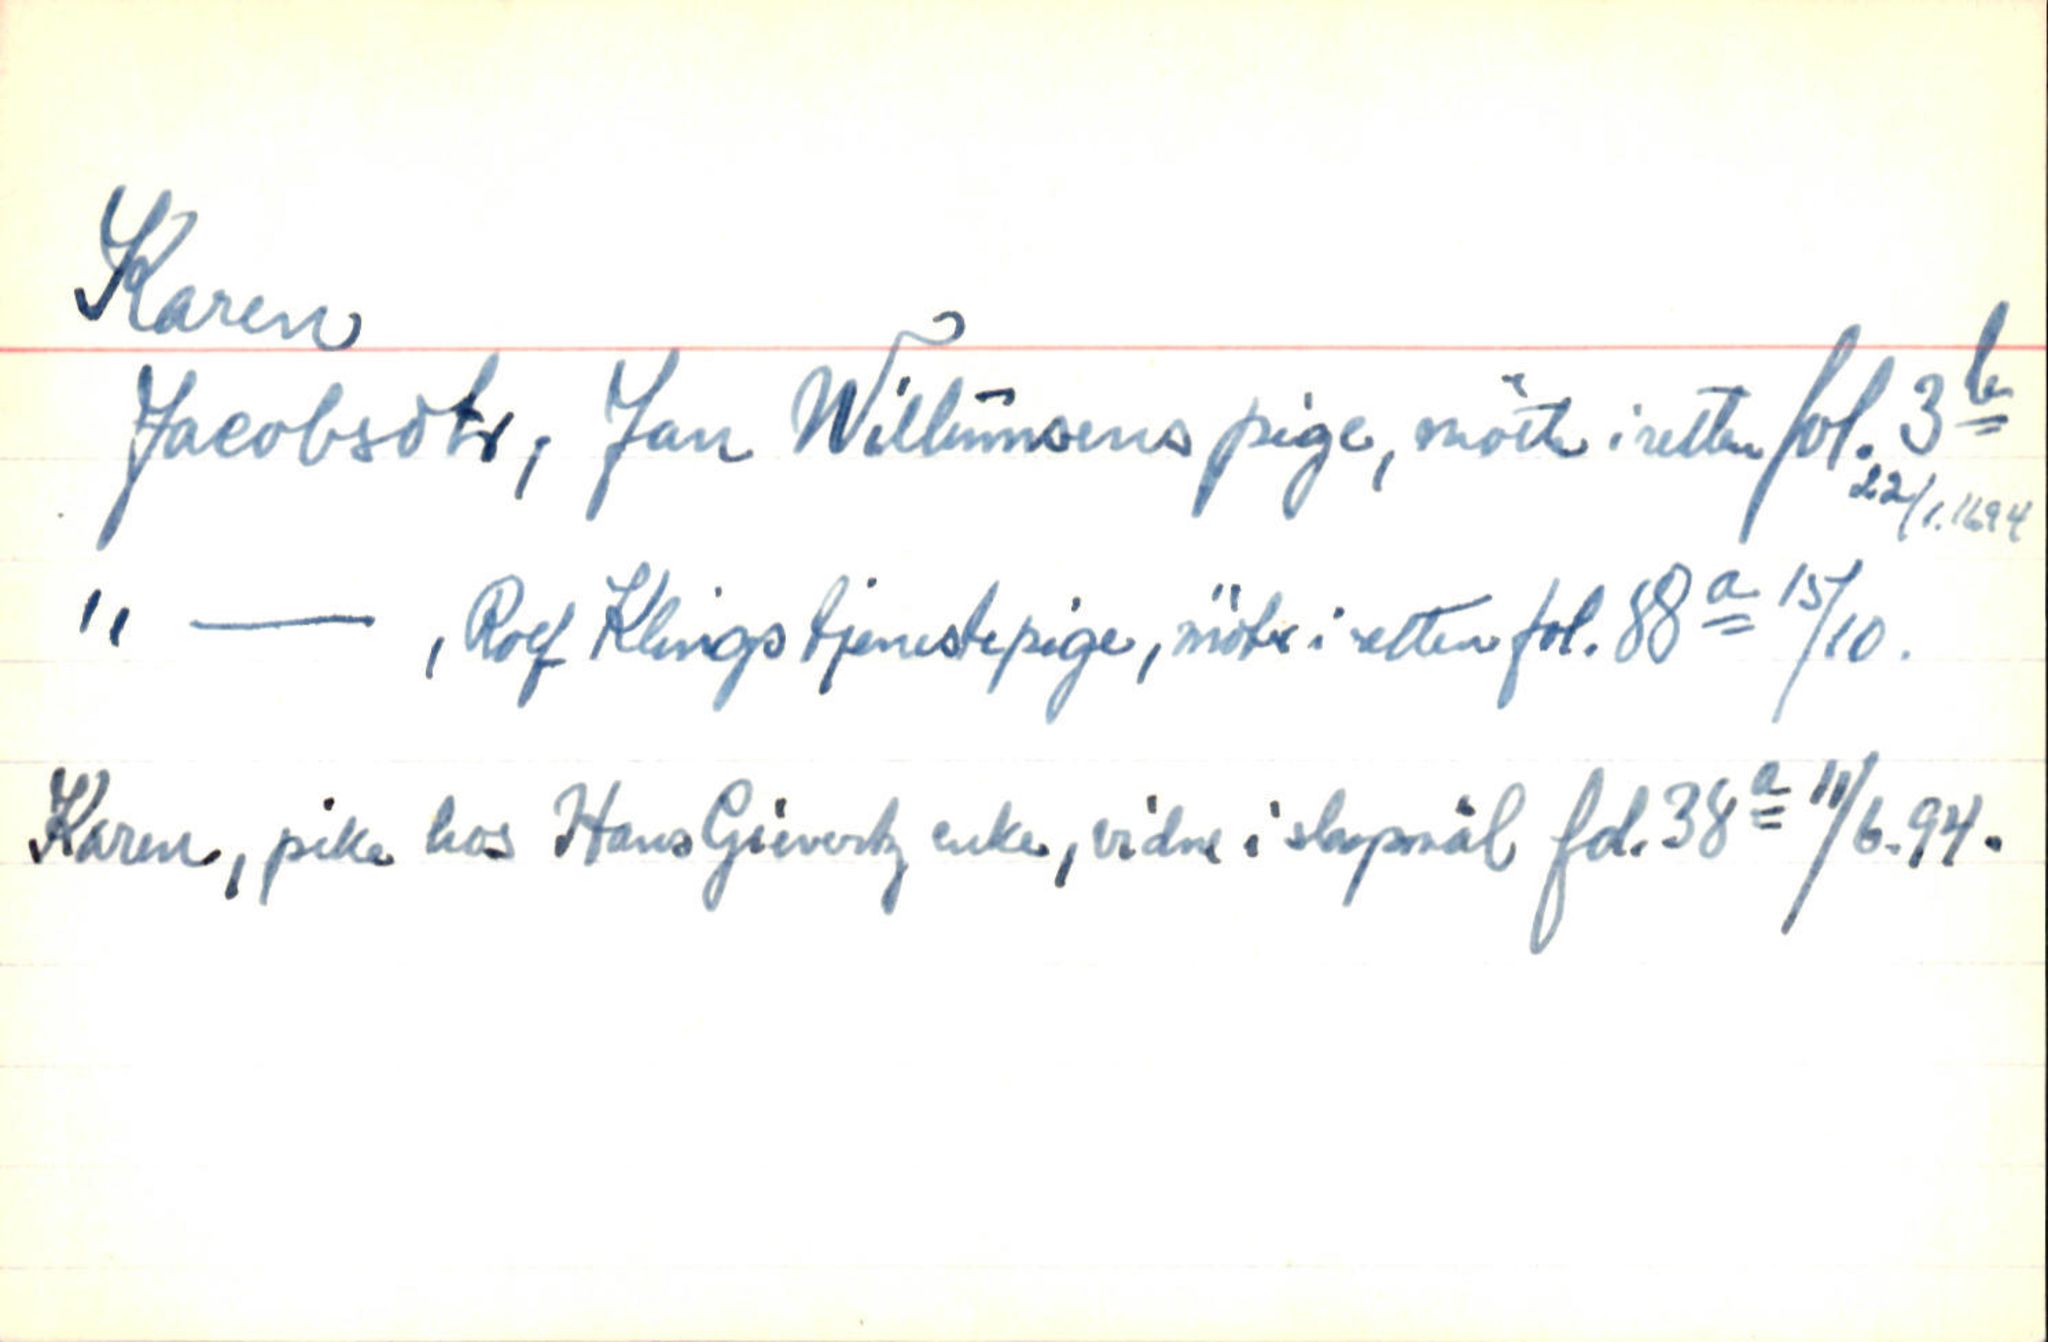 Karen
Jacobsdtr, Jan Willumsens pige, møtte i retten fol. 3b
22/1.1694
" — , Rolf Klings tjenestepige, møtte i retten fol. 88a 15/10.
Karen, pike hos Hans Gievertz enke, vidne i skapmål fol. 38a 11/6.94.